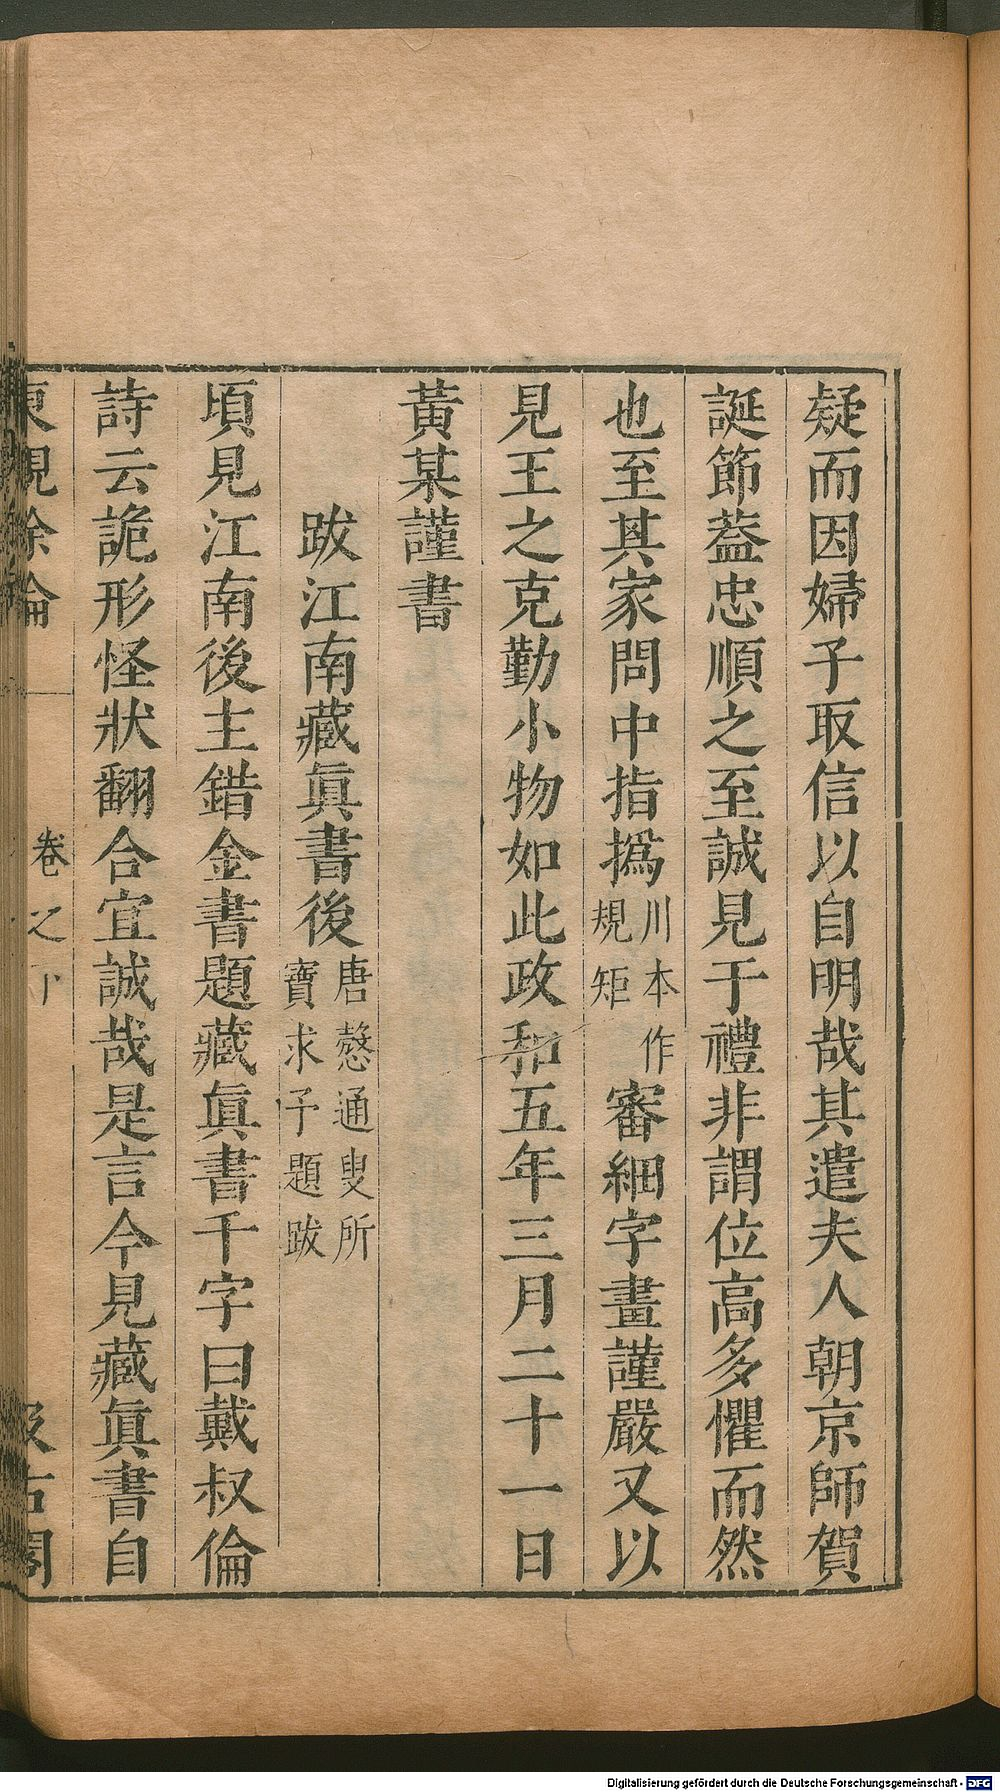 疑而因婦子取信以自明哉其遣夫人朝京師賀
誕節葢忠順之至誠見于禮非謂位高多懼而然
也至其家問中指撝川本作規矩審細字畫謹嚴又以
見王之克勤小物如此政和五年三月二十一日
黃某謹書
跋江南藏眞書後唐慤通叟所寶求予題跋
頃見江南後主錯金書題藏眞書千字曰戴叔倫
詩云詭形怪狀翻合宜誠哉是言今見藏眞書自
東觀餘論 卷之下 汲古閣
Digitalisierung gefördert durch die Deutsche Forschungsgemeinschaft - DFG